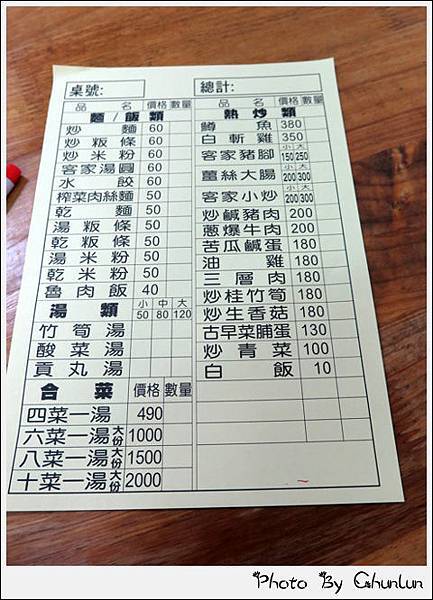 桌號:
總計:
品名 價格 數量
麵/飯類
炒麵 60
炒粄條 60
炒米粉 60
客家湯圓 60
水餃 60
榨菜肉絲麵 50
乾麵 50
湯粄條 50
乾粄條 50
湯米粉 50
乾米粉 50
魯肉飯 40
湯類 小50 中80 大120
竹筍湯
酸菜湯
貢丸湯
合菜 價格 數量
四菜一湯 490
六菜一湯大份 1000
八菜一湯大份 1500
十菜一湯大份 2000
品名 價格 數量
熱炒類
鱒魚 380
白斬雞 350
客家豬腳 小150 大250
薑絲大腸 小200 大300
客家小炒 小200 大300
炒鹹豬肉 200
蔥爆牛肉 200
苦瓜鹹蛋 180
油雞 180
三層肉 180
炒桂竹筍 180
炒生香菇 180
古早菜脯蛋 130
炒青菜 100
白飯 10
Photo By Chunlun